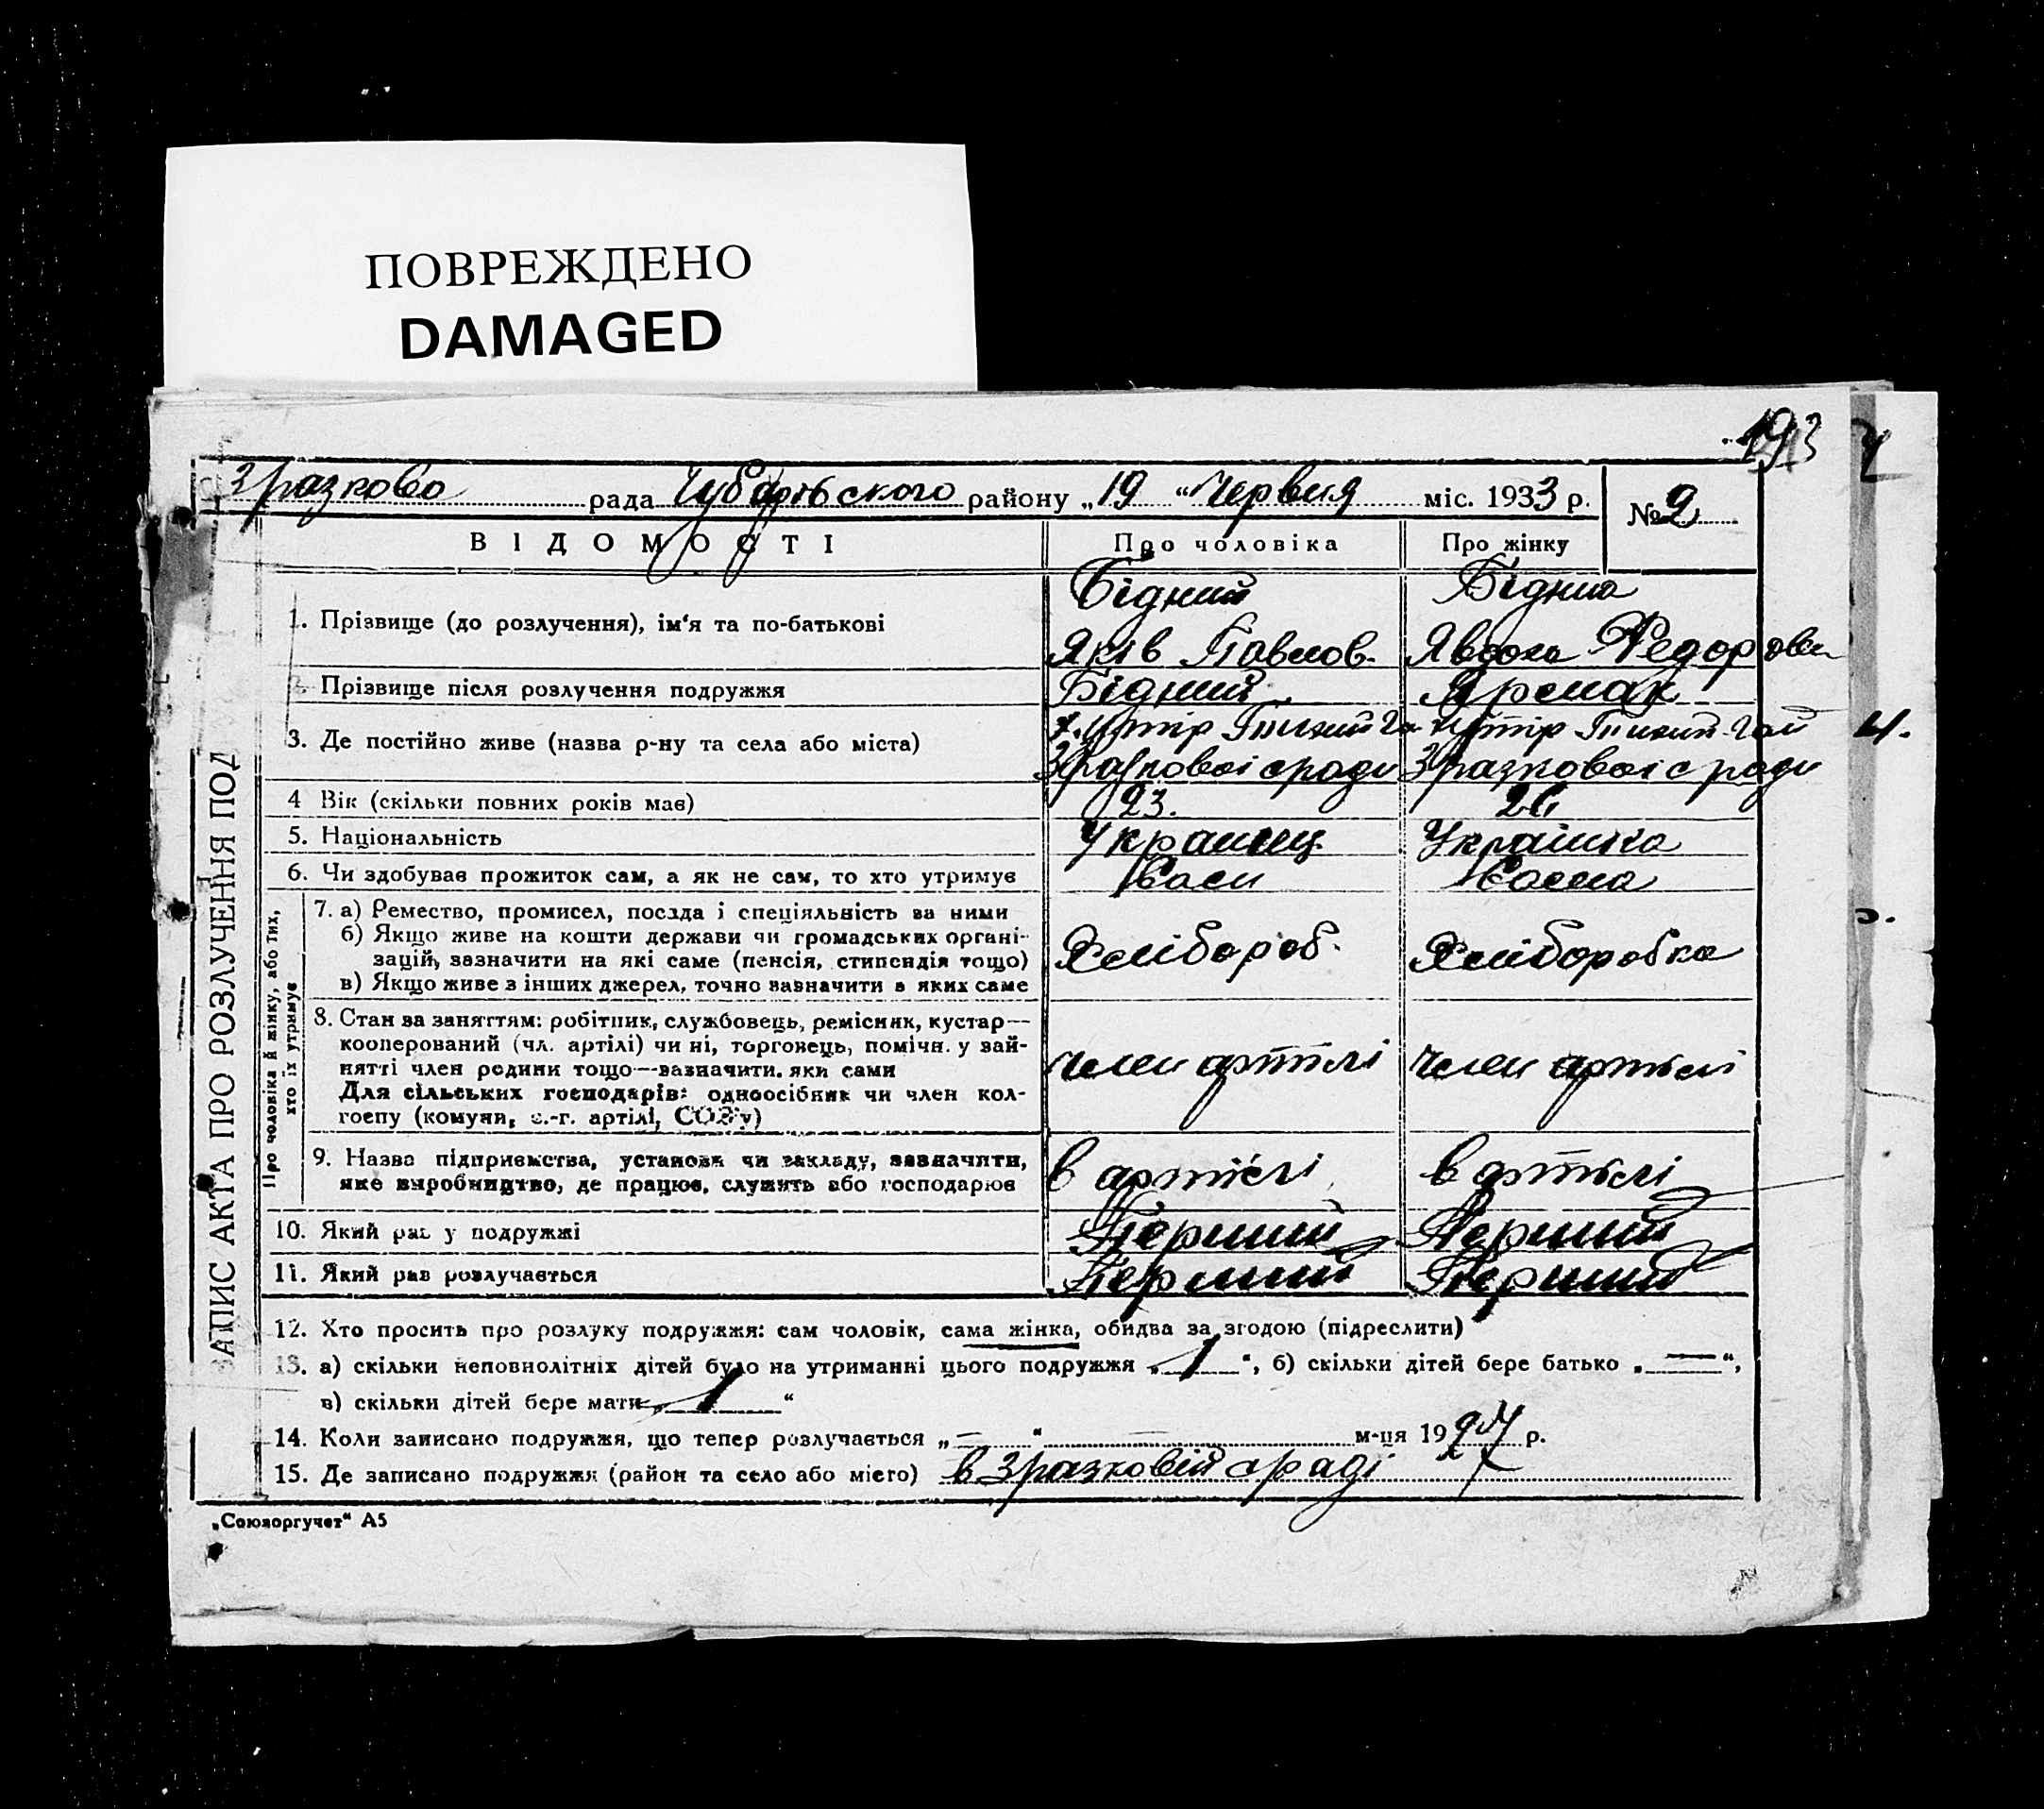 ПОВРЕЖДЕНО
DAMAGED
193
Зразково рада Чубарівського району „19“ Червня міс. 1933 р.
№ 2
ВІДОМОСТІ Про чоловіка Про жінку
Бідний Бідна
1. Прізвище (до розлучення), ім'я та по-батькові
Яків Павлов. Явдоха Федоровн
2. Прізвище після розлучення подружжя Бідний Яремак
3. Де постійно живе (назва р-ну та села або міста)
х. Хутір Тихий Га Хутір Тихий-Гай
Зразковоі сради Зразковоі сради
4 Вік (скільки повних років має) 23. 26
5. Національність Украинец Українка
6. Чи здобував прожиток сам, а як не сам, то хто утримує Сам Сама
Про чоловіка й жінку, або тих,
хто їх утримує
7. а) Ремество, промисел, посада і спеціяльність за ними
б) Якщо живе на кошти держави чи громадських органі-
зацій, зазначити на які саме (пенсія, стипендія тощо)
в) Якщо живе з інших джерел, точно зазначити з яких саме
Хлібороб. Хліборобка
8. Стан за заняттям: робітник, службовець, ремісник, кустар—
кооперований (чл. артілі) чи ні, торговець, помічн. у зай-
нятті член родини тощо—зазначити, яки сами
Для сільських господарів: одноосібник чи член кол-
госпу (комуни, с.-г. артілі, СОЗ'у)
член артілі член артілі
9. Назва підприємства, установи чи закладу, зазначити,
яке виробництво, де працює, служить або господарює
в артілі в артілі
10. Який раз у подружжі Перший Перший
11. Який раз розлучається Перший Перший
12. Хто просить про розлуку подружжя: сам чоловік, сама жінка, обидва за згодою (підреслити)
13. а) скільки неповнолітніх дітей було на утриманні цього подружжя „1“, б) скільки дітей бере батько „—“,
в) скільки дітей бере мати „1“
14. Коли записано подружжя, що тепер розлучається „—“ — м-ця 1927 р.
15. Де записано подружжя (район та село або місто) в Зразковій сраді
„Союзоргучет“ А5
ЗАПИС АКТА ПРО РОЗЛУЧЕННЯ ПОД